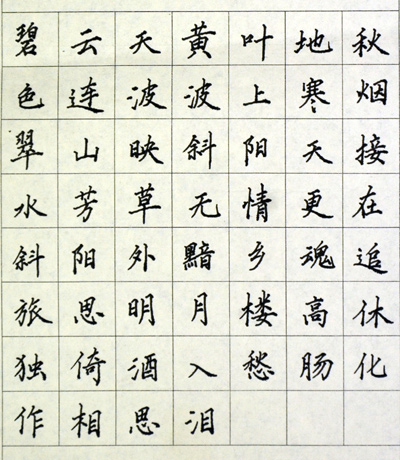 碧云天黄叶地秋
色连波波上寒烟
翠山映斜阳天接
水芳草无情更在
斜阳外黯乡魂追
旅思明月楼高休
独倚酒入愁肠化
作相思泪